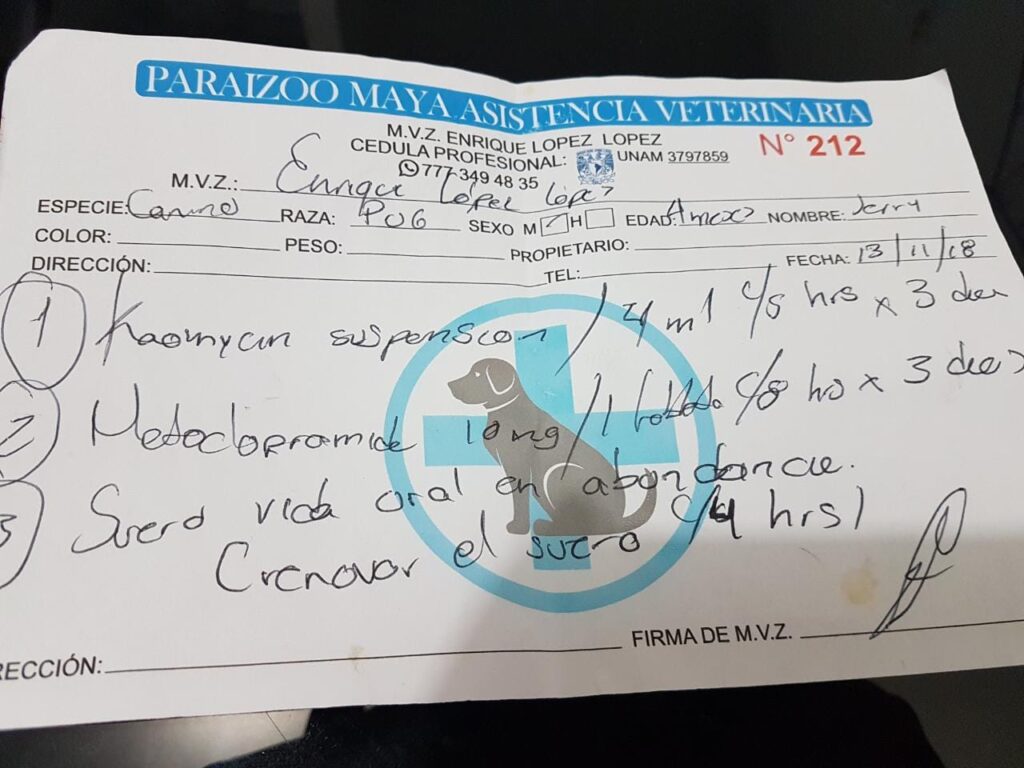 PARAIZOO MAYA ASISTENCIA VETERINARIA
M.V.Z. ENRIQUE LOPEZ LOPEZ
CEDULA PROFESIONAL: UNAM 3797859
777 349 48 35
N° 212
M.V.Z.: Enrique López López
ESPECIE: Canino RAZA: PUG SEXO M H EDAD: NOMBRE: Jerry
COLOR: PESO: PROPIETARIO: FECHA: 13/11/18
DIRECCIÓN: TEL:
1 Kaomycin suspension / 4 ml c/8 hrs x 3 dias
2 Metoclopramida 10 mg / 1 c/8 hrs x 3 dias
3 Suero vida oral en abundancia.
(renovar el suero c/4 hrs)
FIRMA DE M.V.Z.
RECCIÓN: